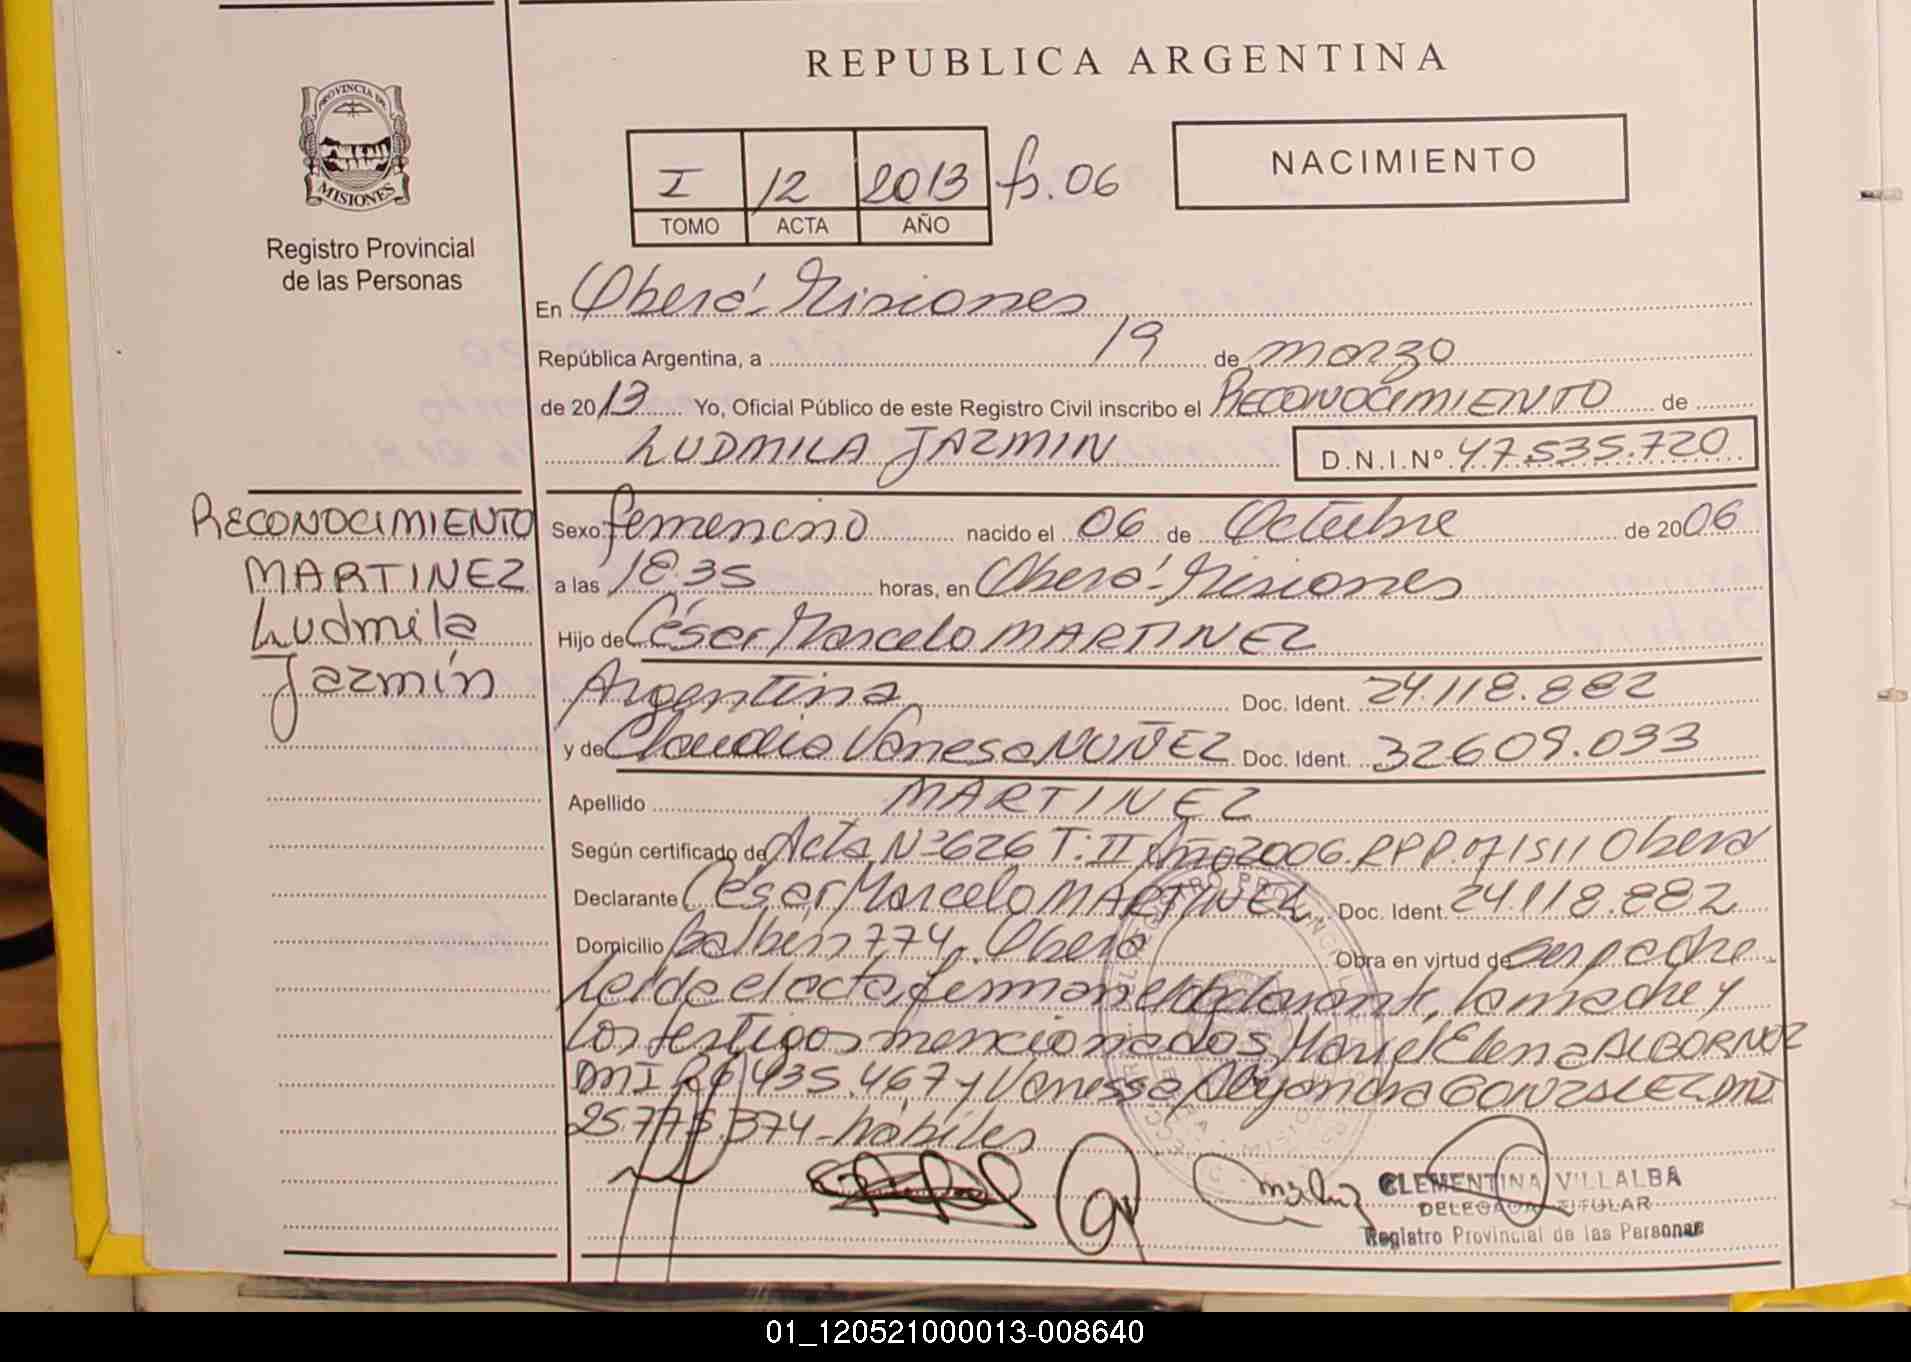 REPUBLICA ARGENTINA
PROVINCIA DE
MISIONES
Registro Provincial
de las Personas
I 12 2013 fs. 06
TOMO ACTA AÑO
NACIMIENTO
En Oberá - Misiones
República Argentina, a 19 de marzo
de 2013 Yo, Oficial Público de este Registro Civil inscribo el RECONOCIMIENTO de
LUDMILA JAZMIN D.N.I.Nº 47.535.720
RECONOCIMIENTO
MARTINEZ
Ludmila
Jazmín
Sexo femenino nacido el 06 de Octubre de 2006
a las 18.35 horas, en Oberá - Misiones
Hijo de César Marcelo MARTINEZ
Argentina Doc. Ident. 24.118.882
y de Claudia Vanesa NUÑEZ Doc. Ident. 32609.033
Apellido MARTINEZ
Según certificado de Acta Nº 626 T: II Año 2006. RPP. 07/1511 Oberá
Declarante César Marcelo MARTINEZ Doc. Ident. 24.118.882
Domicilio Balbín 774. Oberá Obra en virtud de ser padre
Leída el acta, firman el declarante, la madre y
los testigos mencionados Mariel Elena ALBORNOZ
DNI 26.435.467 y Vanessa Alejandra GONZALEZ DNI
25.775.374 - hábiles
CLEMENTINA VILLALBA
DELEGADA TITULAR
Registro Provincial de las Personas
01_120521000013-008640